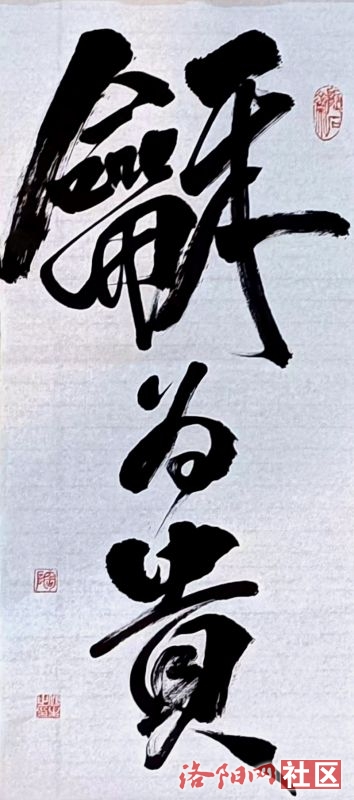 龢为貴
洛阳网社区